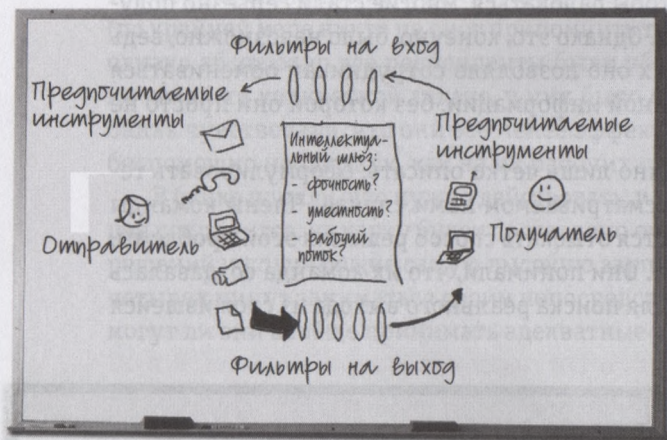 Фильтры на вход
Предпочитаемые
инструменты
Предпочитаемые
инструменты
Интеллектуа-
льный шлюз:
- срочность?
- уместность?
- рабочий
поток?
Отправитель
Получатель
Фильтры на выход